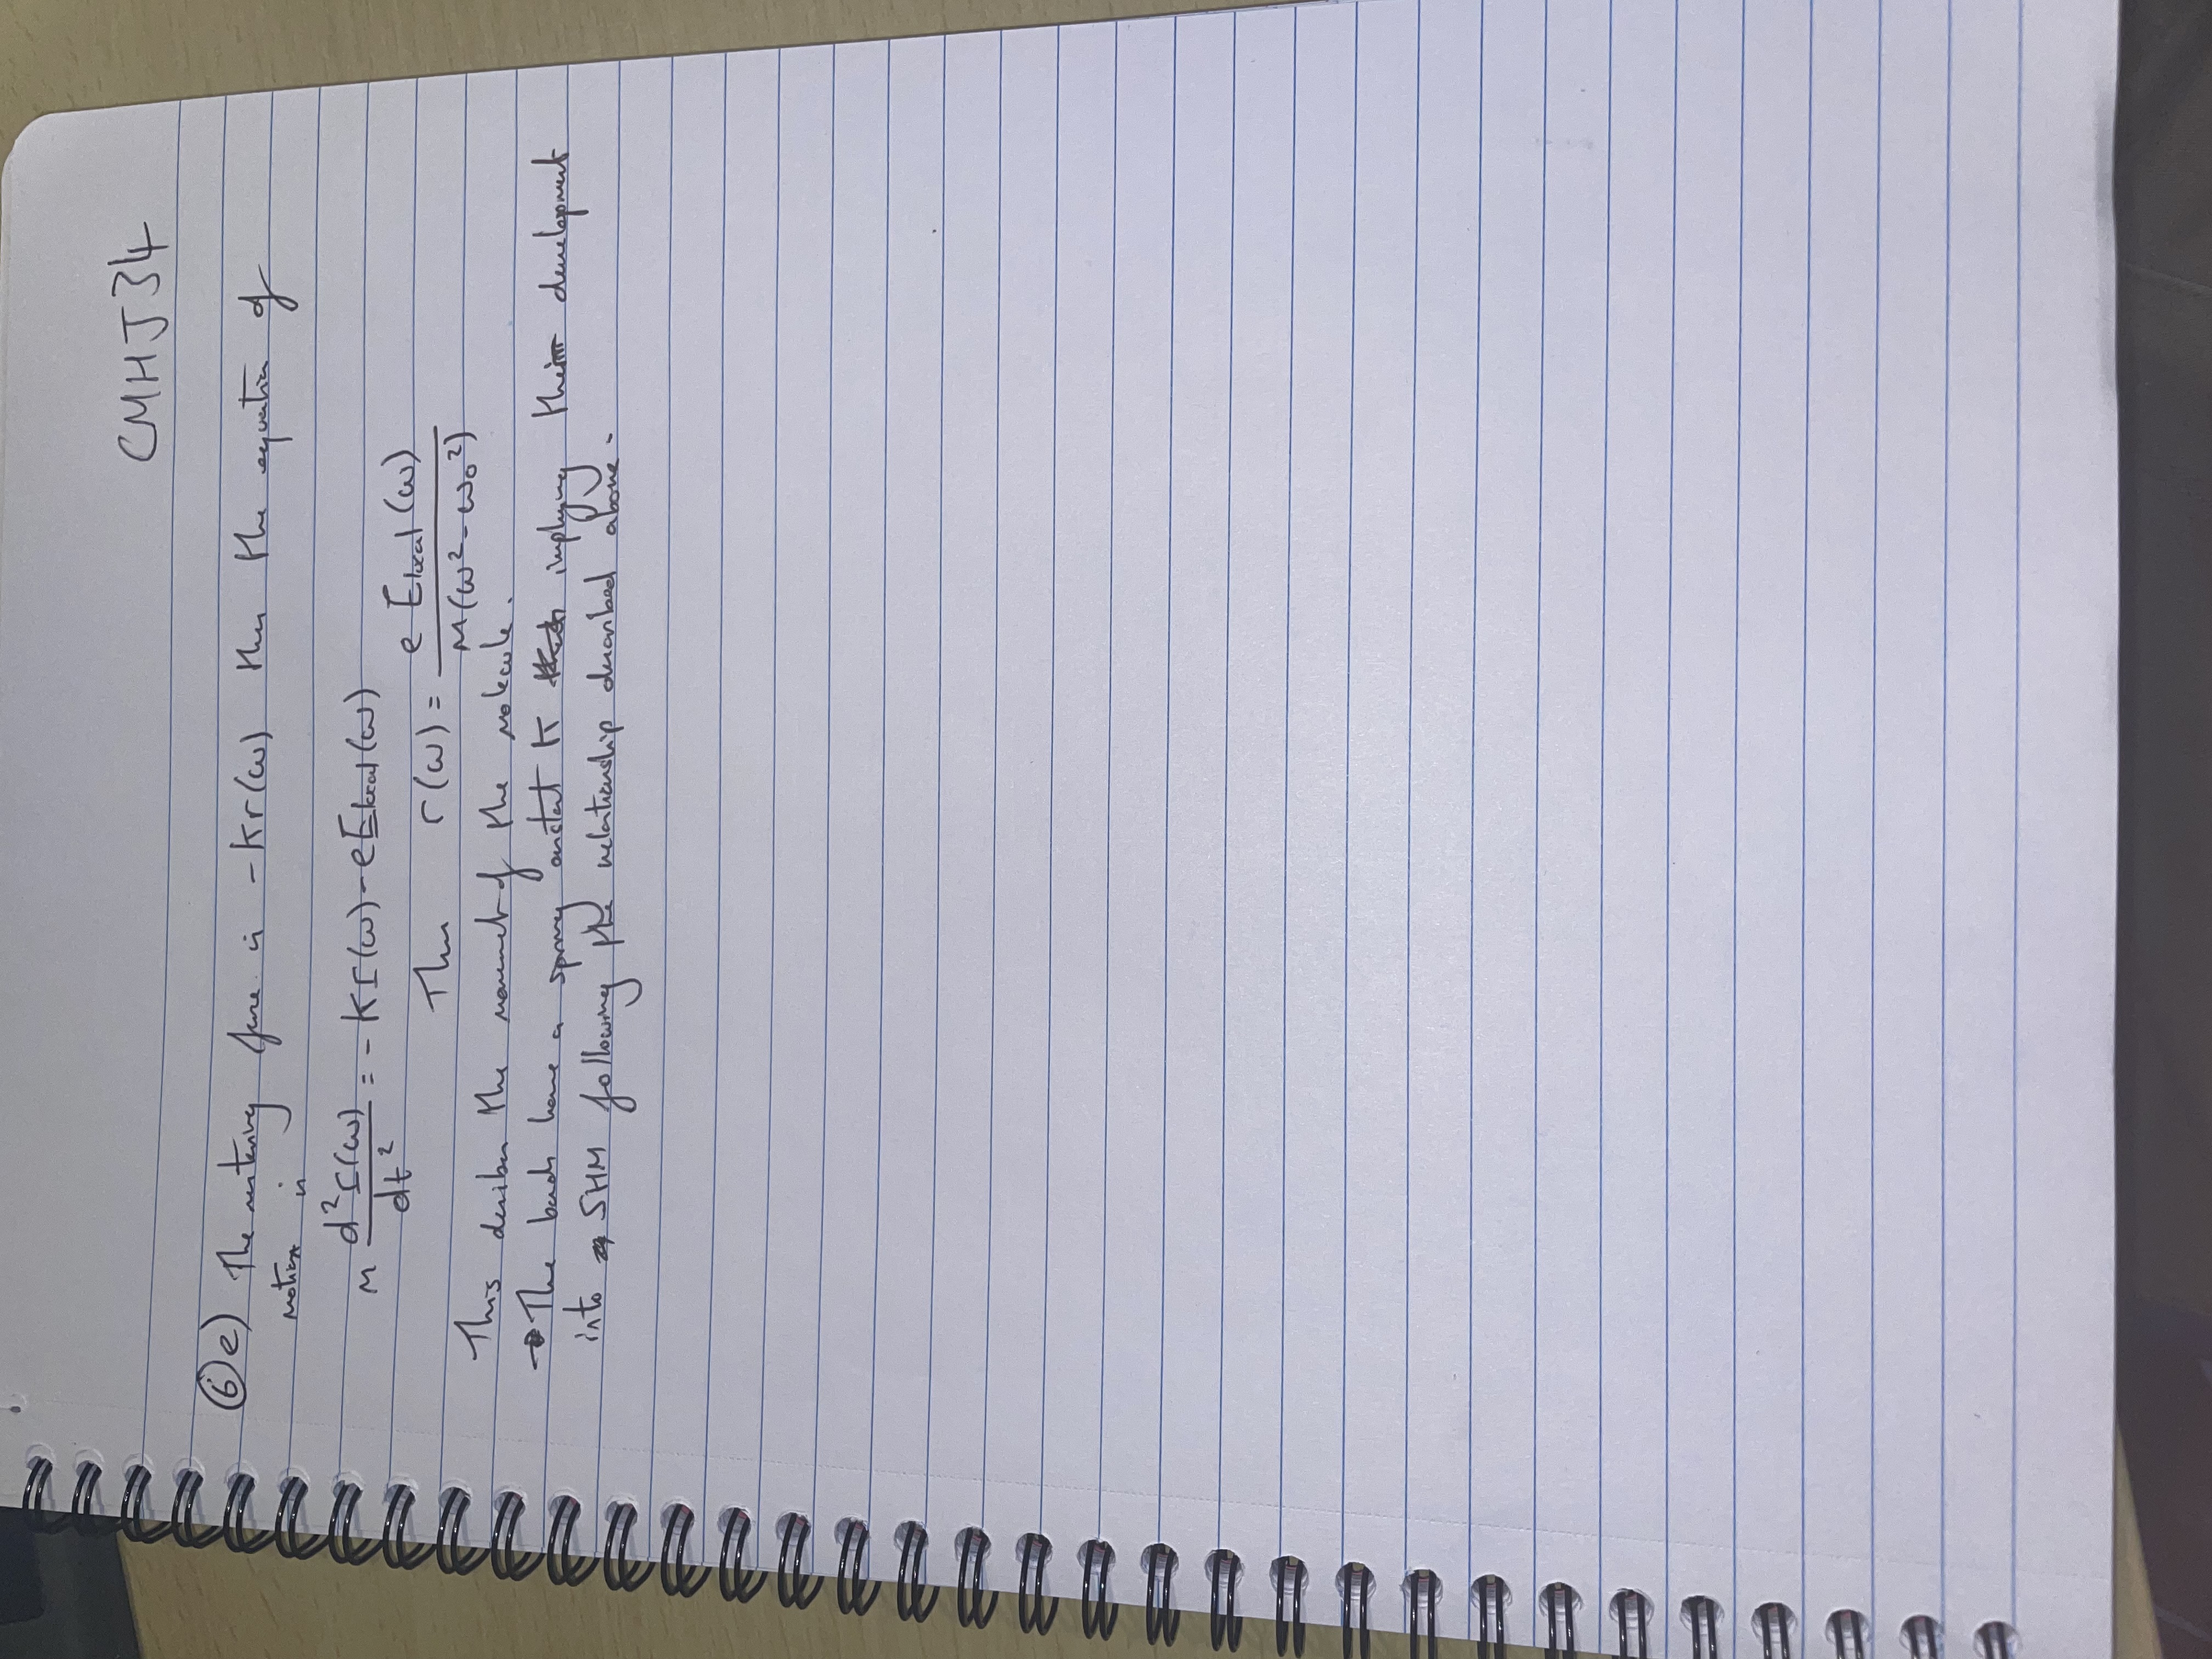 CMHJ34
6 e) The restoring force is -Kr(ω) then the equation of
motion is
M d²r(ω)/dt² = -Kr(ω) - eElocal(ω)
Thus r(ω) = e Elocal(ω) / M(ω² - ω₀²)
This describes the movement of the molecule.
→ The bonds have a spring constant K implying their development
into SHM following the relationship described above.